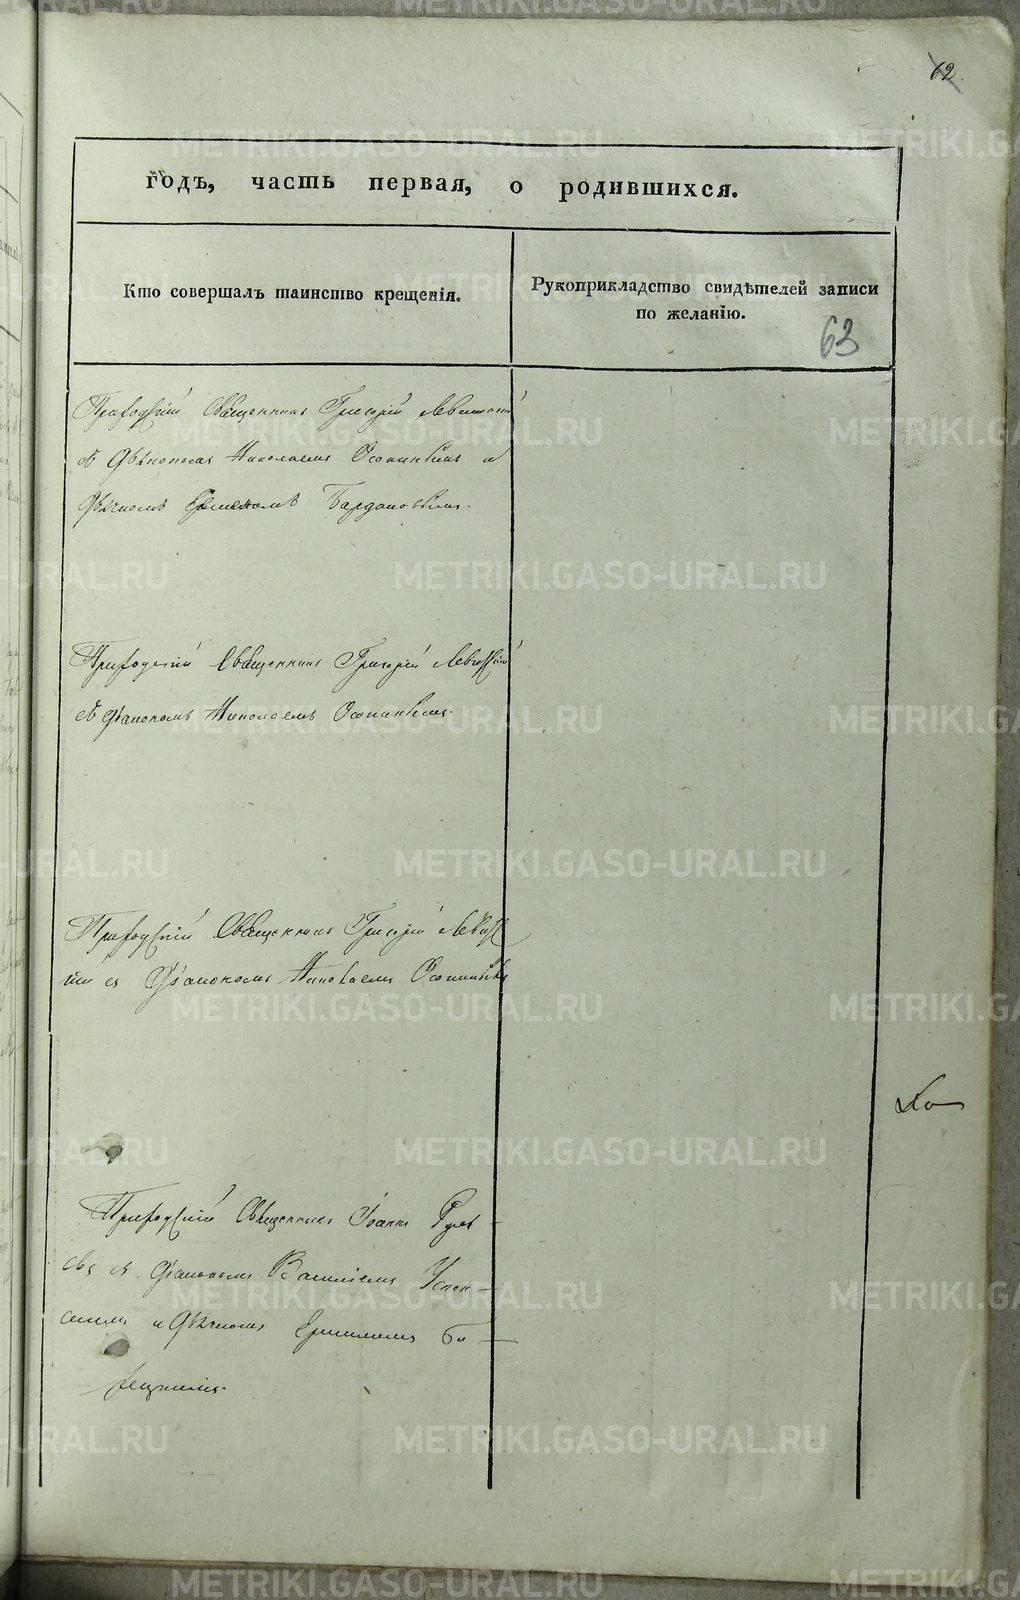 62
годъ, часть первая, о родившихся.
Кто совершалъ таинство крещенія.
Рукоприкладство свидѣтелей записи
по желанію.
63
Приходскій Священникъ Григорій Левитскій
съ Дьякономъ Николаемъ и
Дьячкомъ
Приходскій Священникъ Григорій Левитскій
съ Діакономъ Николаемъ
Приходскій Священникъ Григорій Левитс
кій съ Діакономъ Николаемъ
Приходскій Священникъ Іоаннъ
съ Діакономъ Василіемъ Успен-
скимъ и Дьячкомъ
METRIKI.GASO-URAL.RU